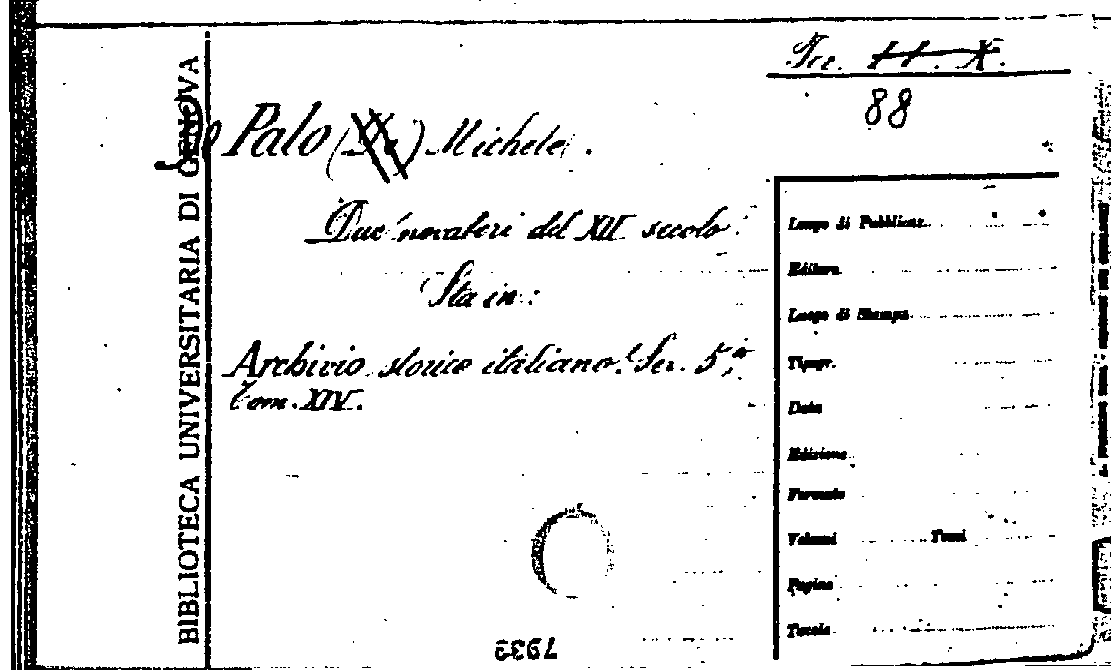 BIBLIOTECA UNIVERSITARIA DI GENOVA
Per. 11. X.
88
De Palo (De) Michele.
Due novatori del XII secolo.
Sta in:
Archivio storico italiano. Ser. 5ª,
Tom. XIV.
Luogo di Pubblicaz.
Editore
Luogo di Stampa
Tipogr.
Data
Edizione
Formato
Volumi Tomi
Pagine
Tavole
7933